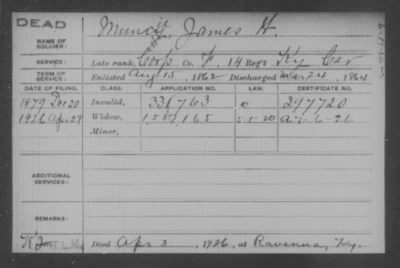 DEAD
NAME OF SOLDIER: James H.
SERVICE: Late rank, Corp Co. F, 14 Reg't Ky Cav
TERM OF SERVICE: Enlisted Aug 15, 1862 Discharged Mar 24, 1864
DATE OF FILING. CLASS. APPLICATION NO. LAW. CERTIFICATE NO.
1879 Dec 20 Invalid, 331763 297720
1926 Apr 29 Widow,
Minor,
ADDITIONAL SERVICES:
REMARKS:
Died Apr 3, 1926, at Ravenna, Ky.